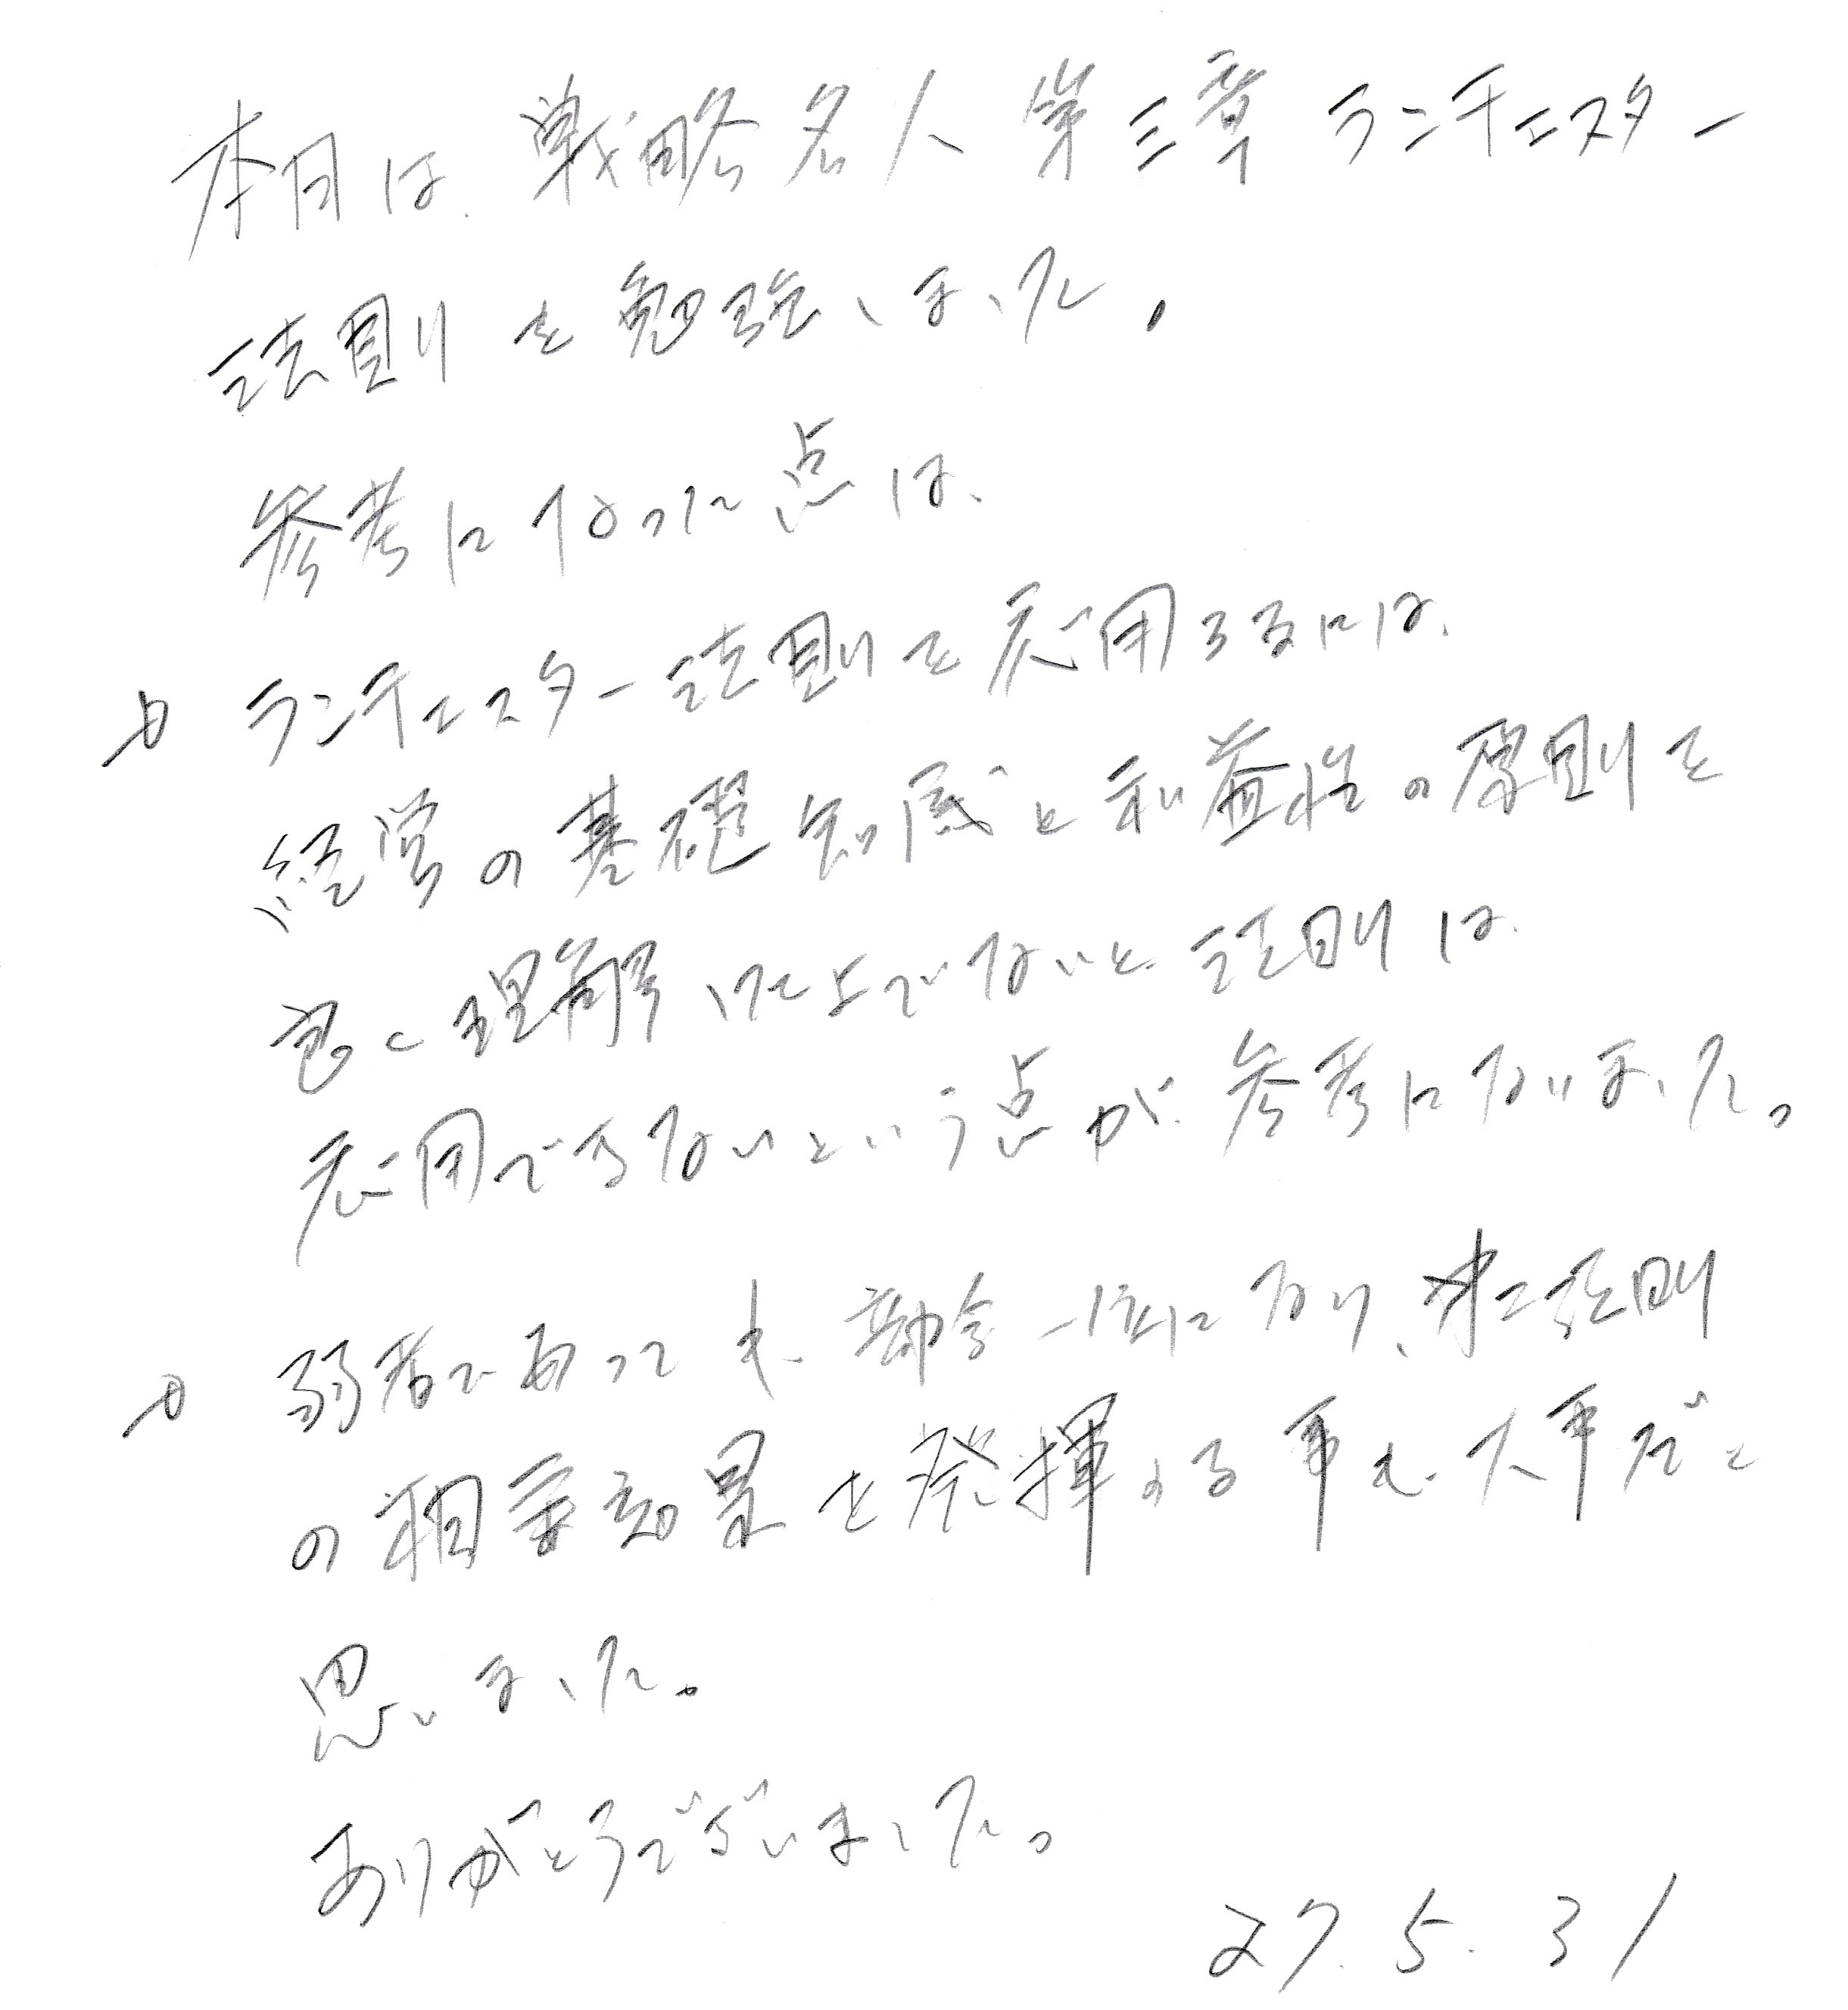 本日は、戦略名人 第三章 ランチェスター
法則を勉強しました。
参考になった点は、
ランチェスター法則を応用するには、
経営の基礎知識と利益性の原則を
良く理解した上でないと、法則は、
応用できないという点が、参考になりました。
弱者であっても、一位になり、第二法則
の相乗効果を発揮する事も、大事だと
思いました。
ありがとうございました。
27.5.31